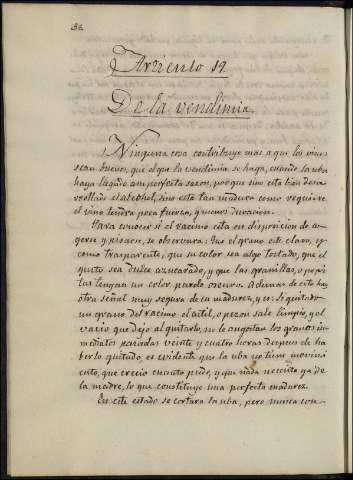 Arriculo 19.
De la vendimia.
Ninguna cosa contribuye mas a que los vinos
sean buenos, que el que la vendimia se haga, cuando la uba
haya llegado a su perfecta sazon, por que sino està bien desa-
rrollado el alcohol, sino està tan maduro como requiere
el vino tendra poca fuerza, y menos duracion.
Para conocer si el racimo està en disposicion de co-
gerse y pisarse, se observara: Que el grano este claro, y
como trasparente, que su color sea algo tostado, que el
gusto sea dulce azucarado, y que las granillas, o pepi-
tas tengan un color pardo oscuro. Ademas de esto hay
otra señal muy segura de su madurez, y es: Si quitado
un grano del racimo el astil, o pezon sale limpio, y el
vacio que dejo al quitarlo, no lo angostan los granos in-
mediatos pasadas veinte y cuatro horas despues de ha-
berlo quitado, es evidente que la uba no tiene movimi
ento, que crecio cuanto pudo, y que nada necesita ya de
la madre, lo que constituye una perfecta madurez.
En este estado se cortara la uba, pero nunca con-